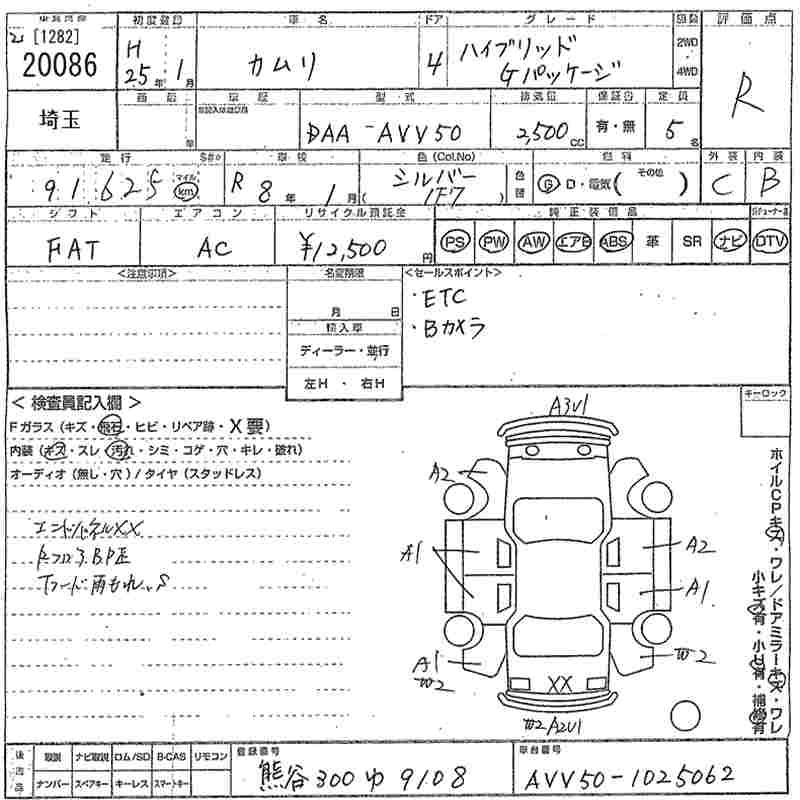 初度登録 車名 ドア グレード 評価点
21 [1282]
20086
H 25年 1月
カムリ
4
ハイブリッド
Gパッケージ
2WD
4WD
R
埼玉
商歴 年
車歴
型式
DAA-AVV50
排気量
2,500 CC
保証書
有・無
定員
5名
走行 車検 色(Col.No) 色替 燃料 外装 内装
91625 マイル km
R 8年 1月
シルバー
( 1F7 )
G D・電気( その他 )
C
B
シフト エアコン リサイクル預託金 純正装備品
FAT
AC
¥12,500円
PS PW AW エアB ABS 革 SR ナビ DTV
<注意事項>
名変期限
月 日
輸入車
ディーラー・並行
左H・右H
<セールスポイント>
・ETC
・Bカメラ
キーロック
< 検査員記入欄 >
Fガラス(キズ・飛石・ヒビ・リペア跡・X要)
内装(キズ・スレ・汚れ・シミ・コゲ・穴・キレ・破れ)
オーディオ(無し・穴)/タイヤ(スタッドレス)
エンドパネルXX
A3U1
A2
A1
A2
A1
A1
W2
W2
XX
W2 A2U1
ホイルCPキズ・ワレ/ドアミラーキズ・ワレ
小キズ有・小U有・補修有
後日品
取説 ナビ取説 ロム/SD B-CAS リモコン
ナンバー スペアキー キーレス スマートキー
登録番号
熊谷 300 ゆ 9108
車台番号
AVV50-1025062